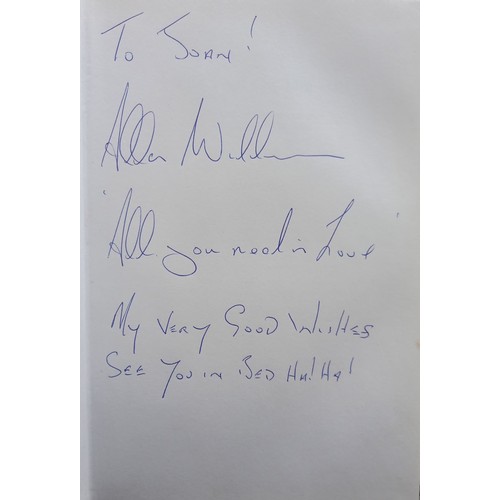 To JOAN!
Allan Williams
'All you need is Love'
My VERY GOOD WISHES
SEE YOU IN BED HA! HA!